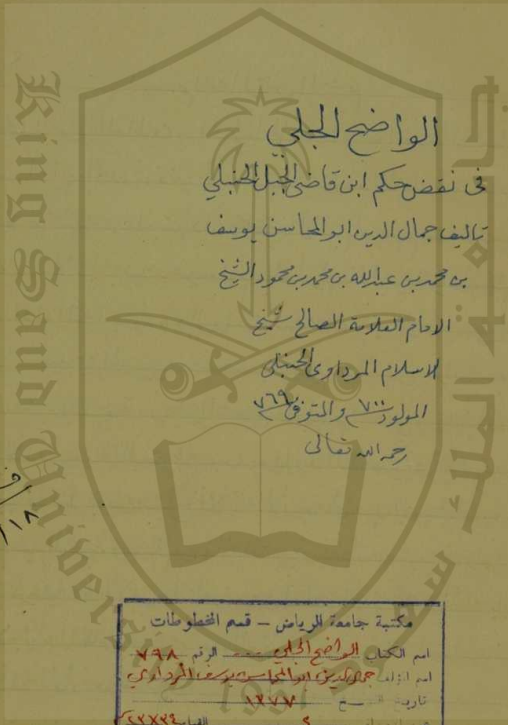 الواضح الجلي
فى نقض حكم ابن قاضى الجبل الحنبلي
تاليف جمال الدين ابو المحاسن يوسف
بن محمد بن عبدالله بن محمد بن محمود الشيخ
الامام العلامة الصالح شيخ
الاسلام المرداوى الحنبلى
المولود ٧٠٠ والمتوفى ٧٦٩
رحمه الله تعالى
١٨
مكتبة جامعة الرياض - قسم المخطوطات
اسم الكتاب الواضح الجلي الرقم ٧٩٨
اسم المؤلف جمال الدين ابو المحاسن يوسف المرداوي
تاريخ النسخ ١٣٧٧
King Saud University
1957